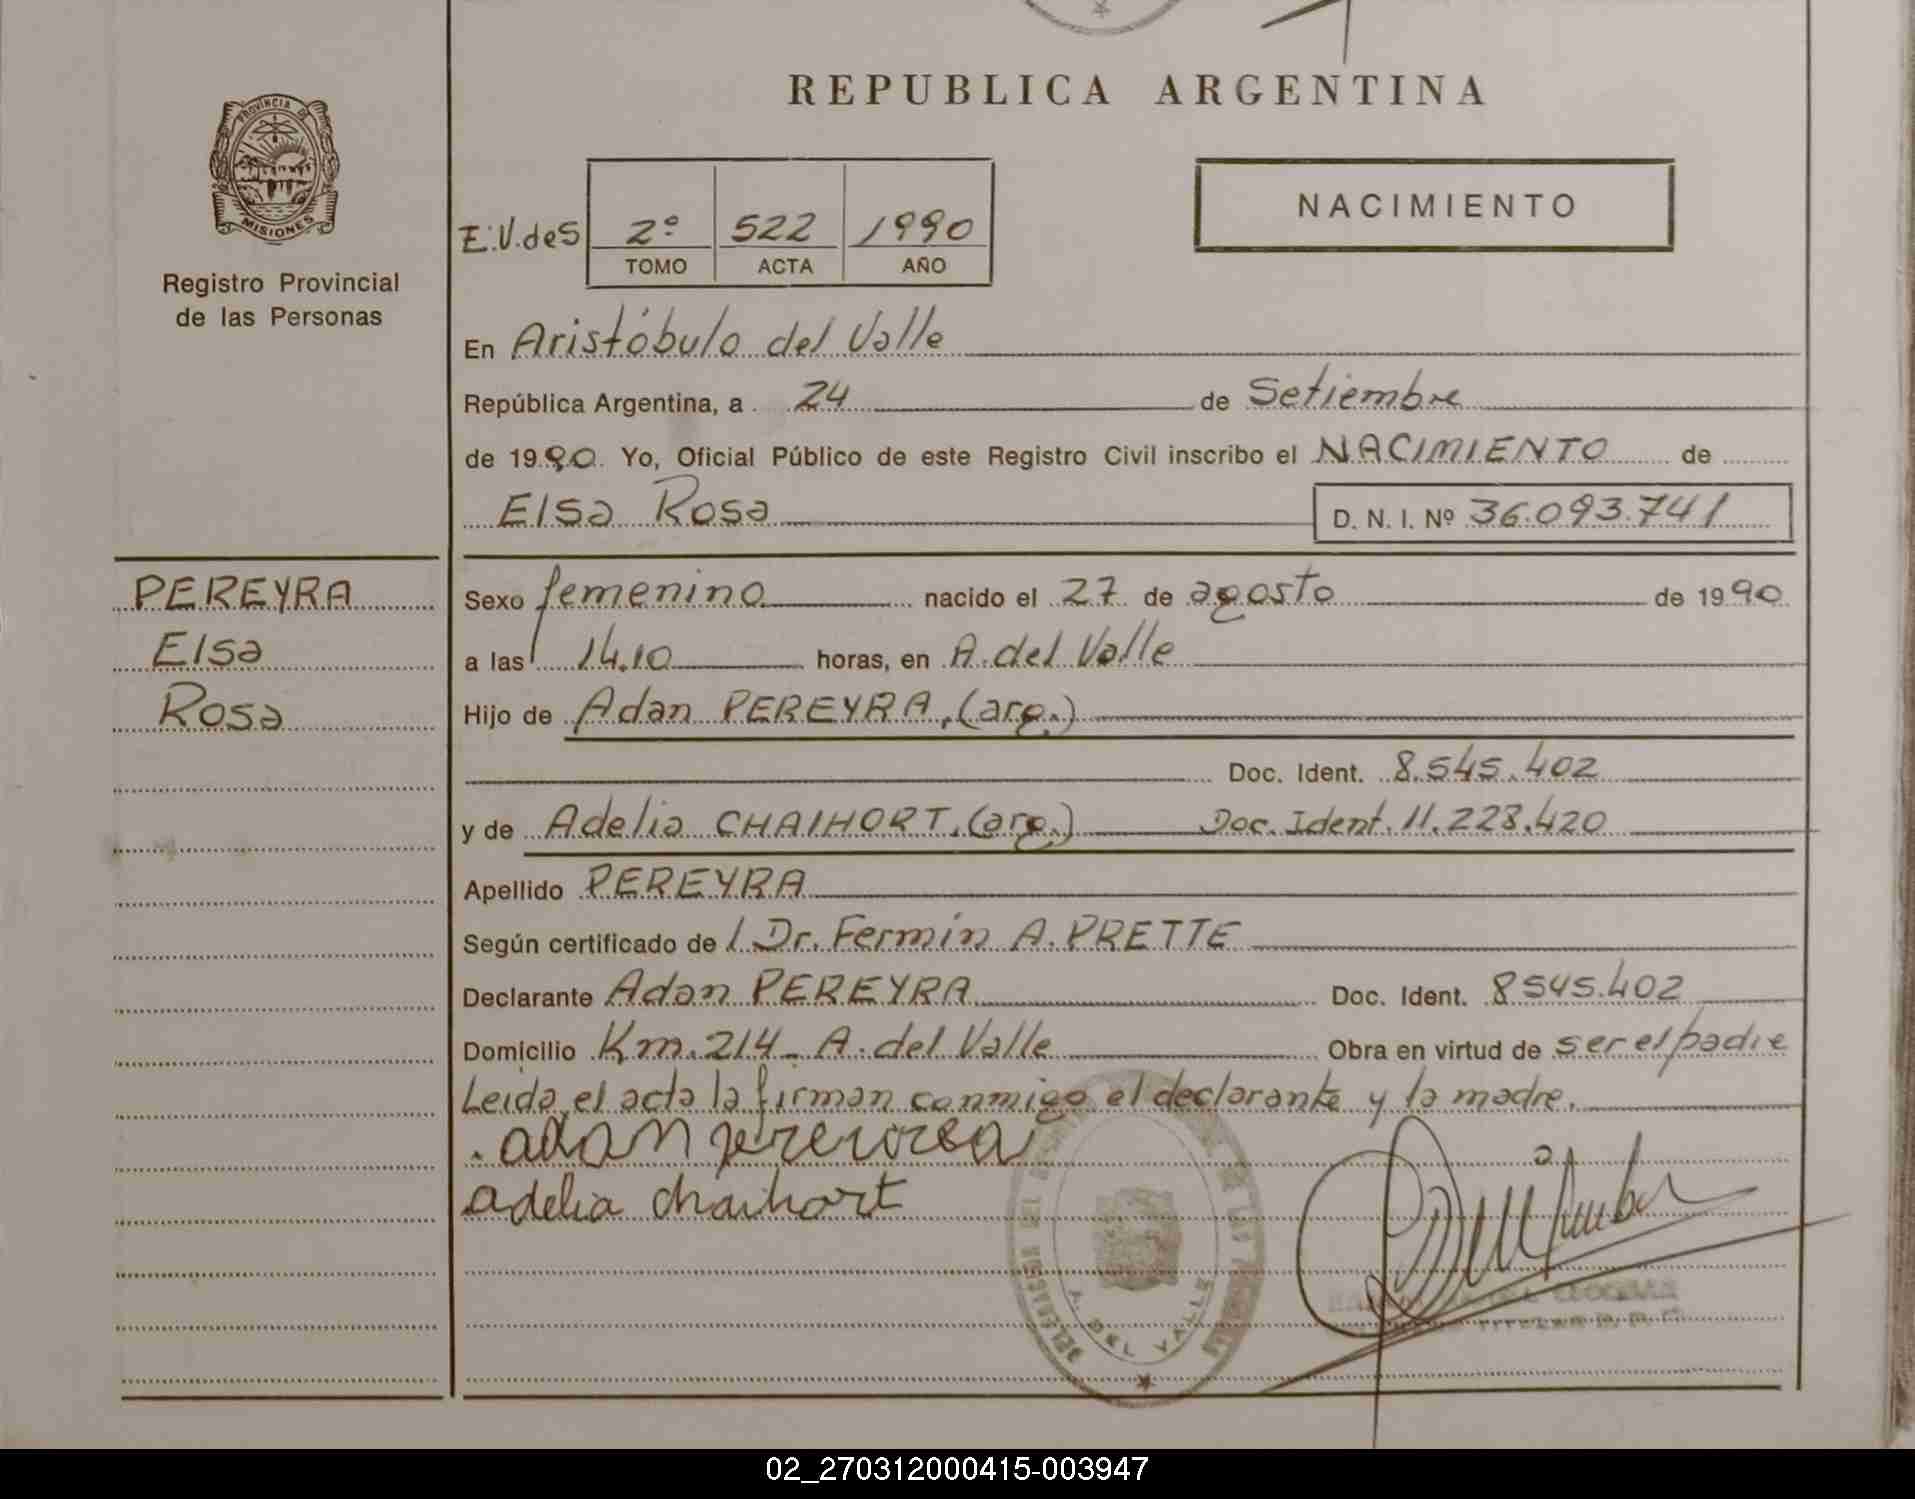 REPUBLICA ARGENTINA
PROVINCIA DE
MISIONES
Registro Provincial
de las Personas
E.V.des
2º 522 1990
TOMO ACTA AÑO
NACIMIENTO
En Aristóbulo del Valle
República Argentina, a 24 de Setiembre
de 1990. Yo, Oficial Público de este Registro Civil inscribo el NACIMIENTO de
Elsa Rosa D. N. I. Nº 36.093.741
PEREYRA
Elsa
Rosa
Sexo femenino nacido el 27 de agosto de 1990
a las 14.10 horas, en A. del Valle
Hijo de Adan PEREYRA, (arg.)
Doc. Ident. 8.545.402
y de Adelia CHAIHORT, (arg.) Doc. Ident. 11.228.420
Apellido PEREYRA
Según certificado de / Dr. Fermín A. PRETTE
Declarante Adan PEREYRA Doc. Ident. 8545.402
Domicilio Km. 214 - A. del Valle Obra en virtud de ser el padre
Leida el acta la firman conmigo el declarante y la madre.
adelia chaihort
A. DEL VALLE
02_270312000415-003947